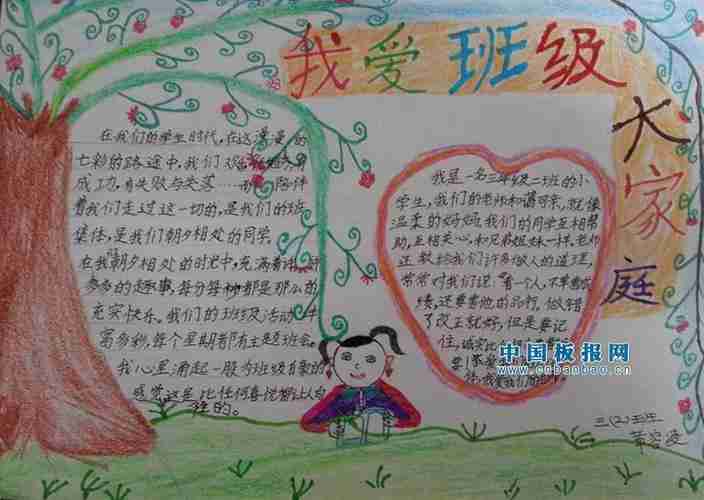 我爱班级
大家庭
在我们的学生时代,在这漫漫的
七彩的路途中,我们
成功,有失败与失落……陪伴
着我们走过这一切的,是我们的班
集体,是我们朝夕相处的同学。
在我朝夕相处的时光中,充满着
多的趣事,每分每秒都是那么的
充实快乐。我们的班级活动
富多彩,每个星期都有主题班会。
我心里涌起一股为班级自豪的
感觉这是比任何喜悦都让人
的。
我是一名三年级二班的小
学生,我们的老师和蔼可亲,就像
温柔的妈妈,我们的同学互相帮
助,互相关心,和兄弟姐妹一样,老师
还教给我们许多做人的道理,
常常对我们说:“看一个人,不单看成
绩,还要看他的品行。做错
了改正就好,但是要记
住,诚实
要
我爱我们
中国板报网
www.cnbanbao.cn
三(2)班